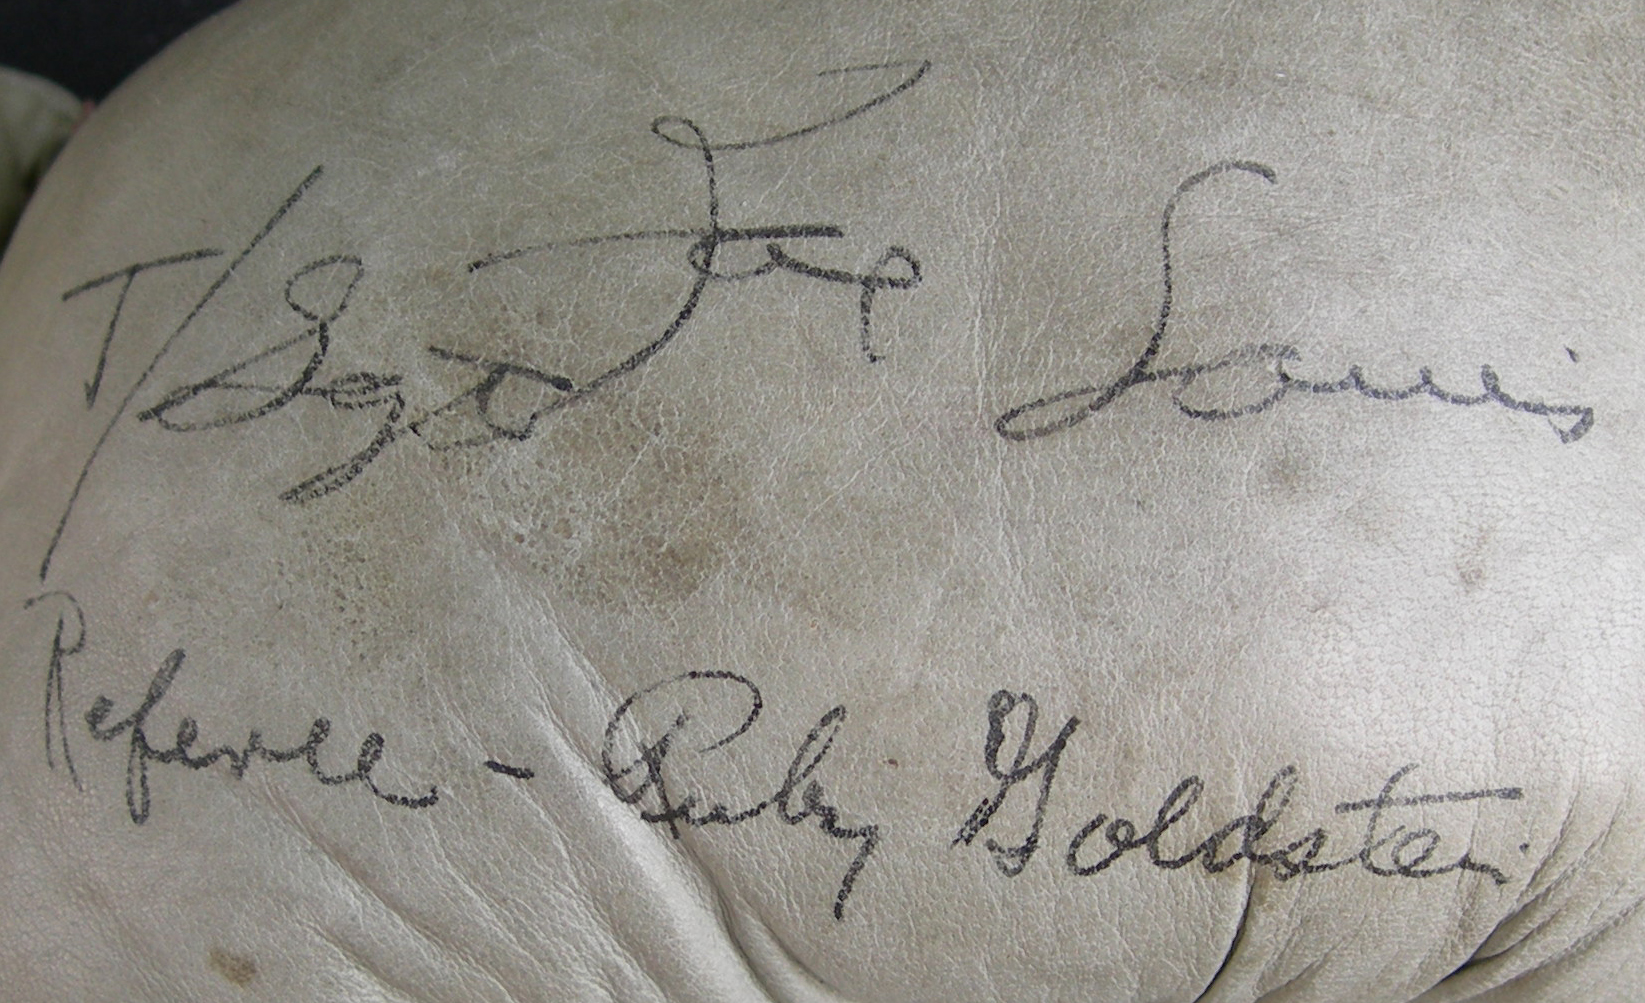 T/Sgt Joe Louis
Referee - Ruby Goldstein